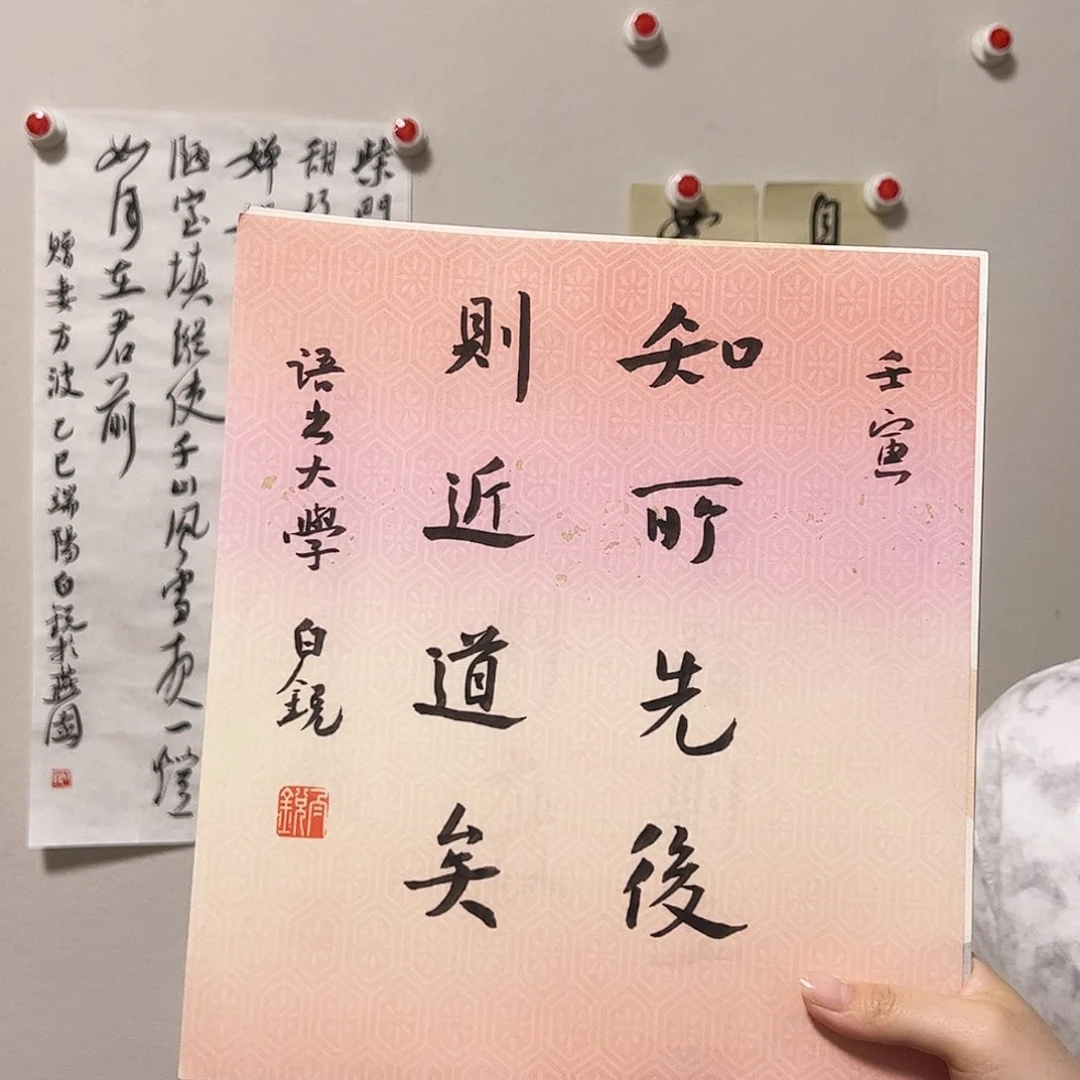 壬寅
知所先後
則近道矣
语出大學 白銳
柴門
甜
嬋
陋室填縱使千山风雪夜一燈
如月在君前
贈妻方波 乙巳端陽白銳於燕園
月